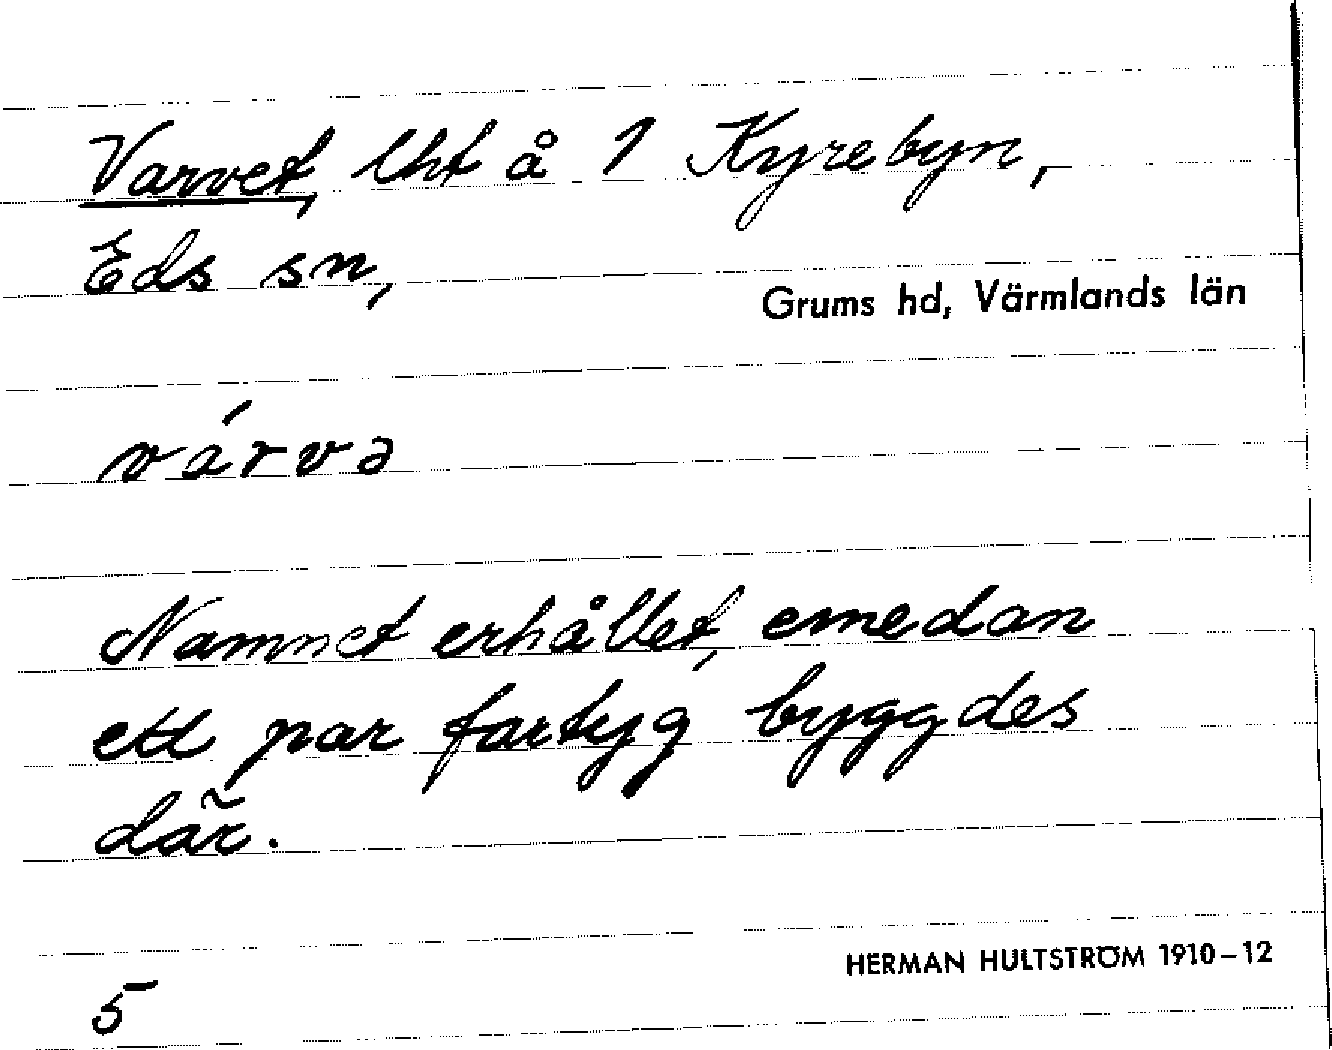 Varvet, lht å 1 Kyrebyn,
Eds sn,
Grums hd, Värmlands län
várvə
Namnet erhållet, emedan
ett par fartyg byggdes
där.
HERMAN HULTSTRÖM 1910–12
5